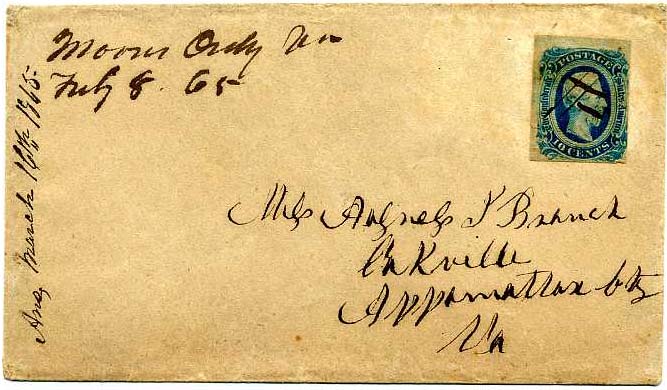 Moors Ordy Va
Feb 8. 65
Ans, March 16th 1865
POSTAGE
TEN CENTS
Miss Agness P Branch
Oakville
Appomattox Cty
Va